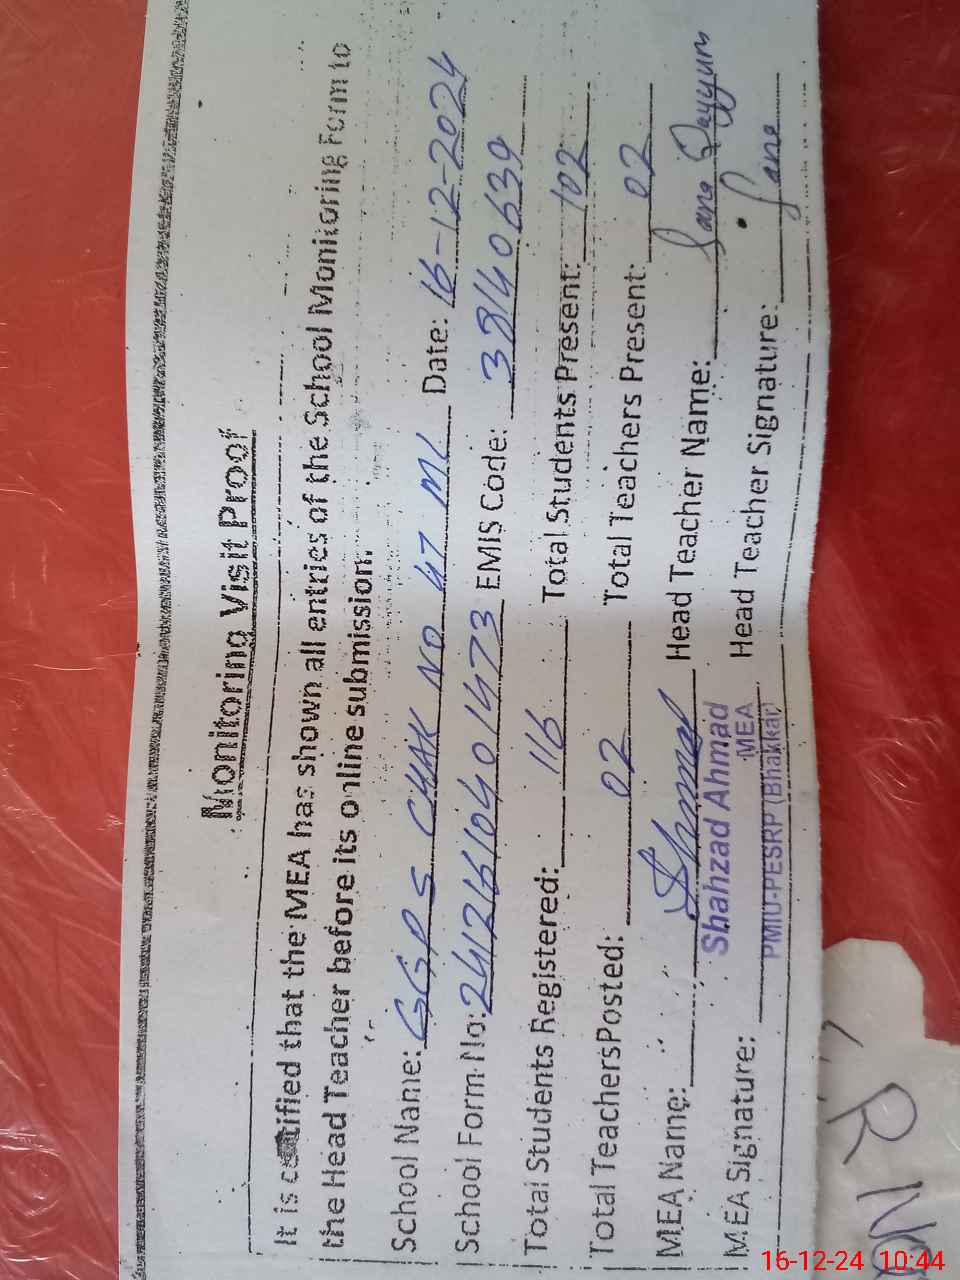 Monitoring Visit Proof
It is certified that the MEA has shown all entries of the School Monitoring Form to
the Head Teacher before its online submission.
School Name: GGPS CHAK NO 47 ML Date: 16-12-2024
School Form No: 24121610401473 EMIS Code: 38140639
Total Students Registered: 116 Total Students Present: 102
Total Teachers Posted: 02 Total Teachers Present: 02
MEA Name: Head Teacher Name: Sana Qayyum
Shahzad Ahmad
MEA
MEA Signature: Head Teacher Signature: Sana
PMIU-PESRP (Bhakkar)
R NO
16-12-24 10:44